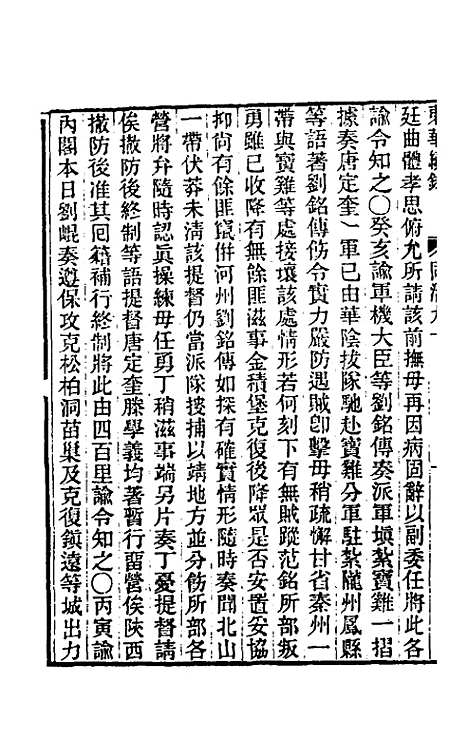 廷曲體孝思俯允所請該前撫毋再因病固辭以副委任將此各
諭令知之○癸亥諭軍機大臣等劉銘傳奏派軍填紮寶雞一摺
據奏唐定奎一軍已由華陰拔隊馳赴寶雞分軍駐紮隴州鳳縣
等語著劉銘傳飭令實力嚴防遇賊卽擊毋稍疏懈甘省秦州一
帶與寶雞等處接壤該處情形若何刻下有無賊蹤范銘所部叛
勇雖已收降有無餘匪滋事金積堡克復後降眾是否安置妥協
抑尙有餘匪竄併河州劉銘傳如探有確實情形隨時奏聞北山
一帶伏莽未淸該提督仍當派隊搜捕以靖地方並分飭所部各
營將弁隨時認眞操練毋任勇丁稍滋事端另片奏丁憂提督請
俟撤防後終制等語提督唐定奎滕學義均著暫行留營俟陝西
撤防後准其囘籍補行終制將此由四百里諭令知之○丙寅諭
內閣本日劉崐奏遵保攻克松柏洞苗巢及克復鎭遠等城出力